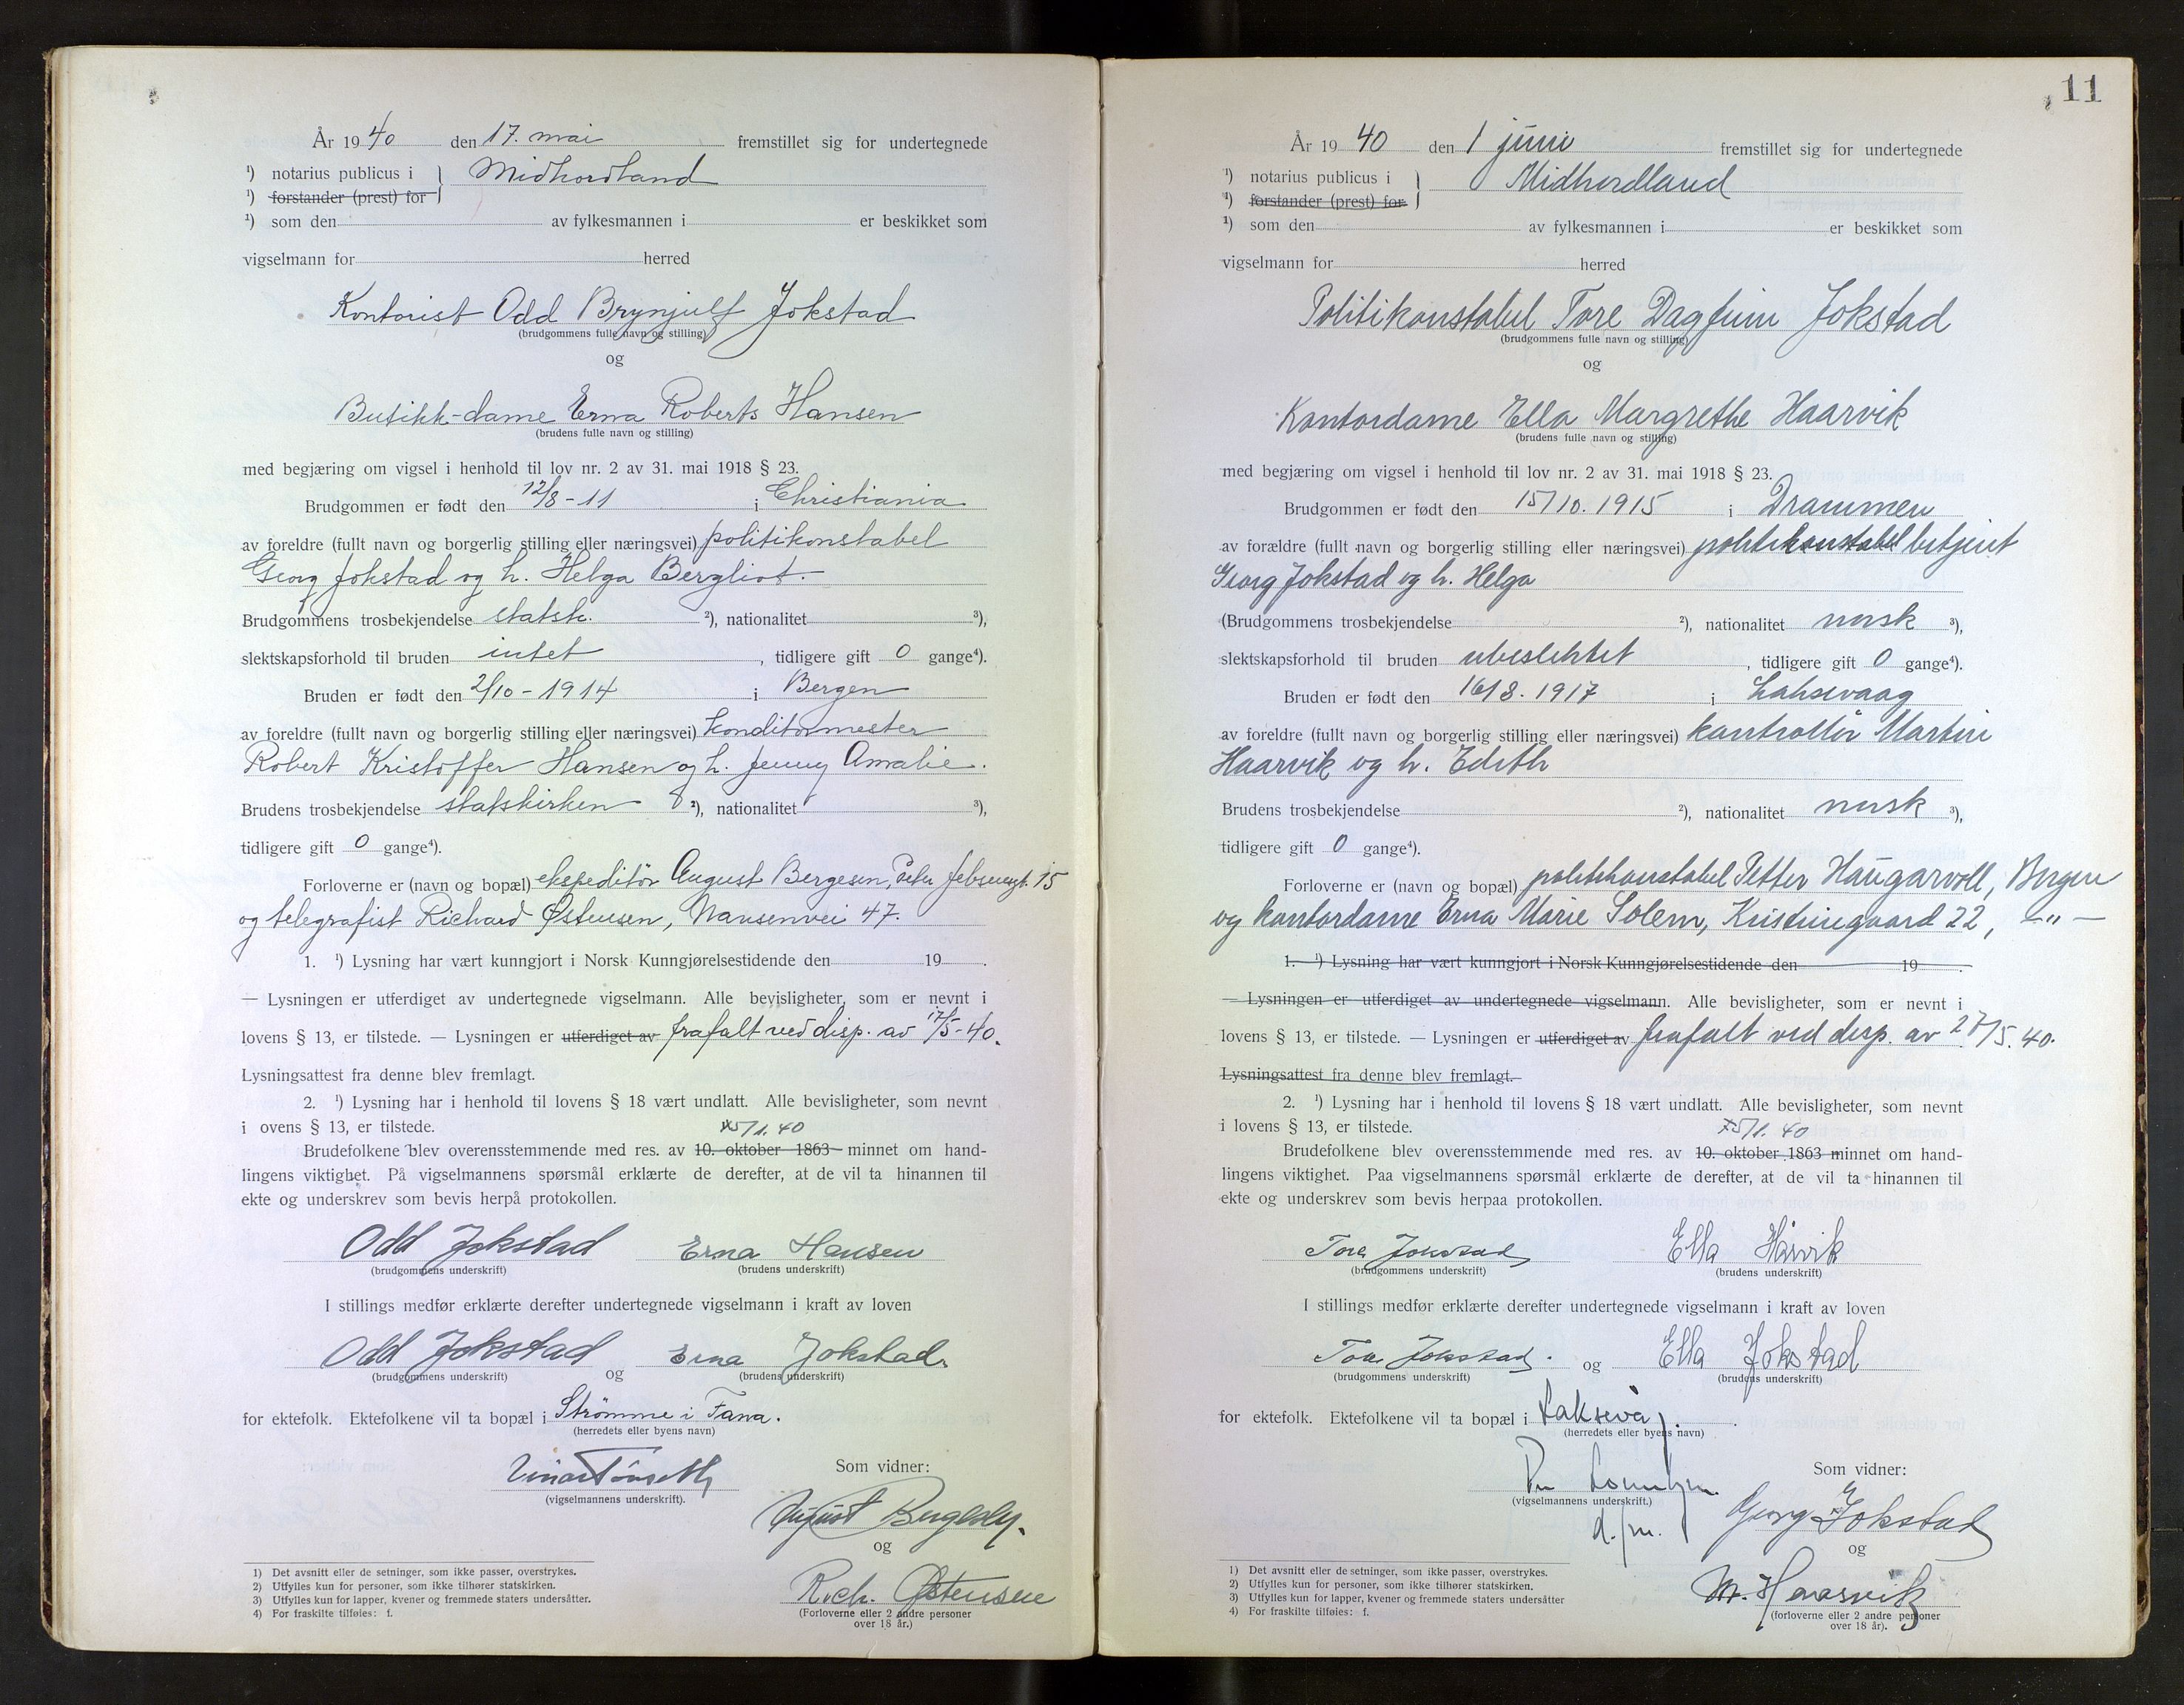 År 1940 den 17. mai fremstillet sig for undertegnede
¹) notarius publicus i } Midhordland
¹) forstander (prest) for
¹) som den av fylkesmannen i er beskikket som
vigselmann for herred
Kontorist Odd Brynjulf Jokstad
(brudgommens fulle navn og stilling)
og
Butikk-dame Erna Roberts Hansen
(brudens fulle navn og stilling)
med begjæring om vigsel i henhold til lov nr. 2 av 31. mai 1918 § 23.
Brudgommen er født den 12/8-11 i Christiania
av foreldre (fullt navn og borgerlig stilling eller næringsvei) politikonstabel
Georg Jokstad og h. Helga Bergliot.
Brudgommens trosbekjendelse statsk. ²), nationalitet ³),
slektskapsforhold til bruden intet, tidligere gift 0 gange⁴).
Bruden er født den 2/10-1914 i Bergen
av foreldre (fullt navn og borgerlig stilling eller næringsvei) konditormester
Robert Kristoffer Hansen og h. Jenny Amalie.
Brudens trosbekjendelse statskirken ²), nationalitet ³),
tidligere gift 0 gange⁴).
Forloverne er (navn og bopæl) ekspeditør August Bergesen, Peter 15
og telegrafist Richard Østensen, Nansenvei 47.
1. ¹) Lysning har vært kunngjort i Norsk Kunngjørelsestidende den 19 .
— Lysningen er utferdiget av undertegnede vigselmann. Alle bevisligheter, som er nevnt i
lovens § 13, er tilstede. — Lysningen er utferdiget av frafalt ved disp. av 17/5-40.
Lysningsattest fra denne blev fremlagt.
2. ¹) Lysning har i henhold til lovens § 18 vært undlatt. Alle bevisligheter, som nevnt
i ovens § 13, er tilstede. 5/1. 40
Brudefolkene blev overensstemmende med res. av 10. oktober 1863 minnet om hand-
lingens viktighet. På vigselmannens spørsmål erklærte de derefter, at de vil ta hinannen til
ekte og underskrev som bevis herpå protokollen.
Odd Jokstad Erna Hansen
(brudgommens underskrift) (brudens underskrift)
I stillings medfør erklærte derefter undertegnede vigselmann i kraft av loven
Odd Jokstad og Erna Jokstad.
(brudgommens underskrift) (brudens underskrift)
for ektefolk. Ektefolkene vil ta bopæl i Strömme i Fana.
(herredets eller byens navn)
Einar Tönseth
(vigselmannens underskrift).
Som vidner:
August Bergesen.
og
Rich. Østensen
(Forloverne eller 2 andre personer
over 18 år.)
1) Det avsnitt eller de setninger, som ikke passer, overstrykes.
2) Utfylles kun for personer, som ikke tilhører statskirken.
3) Utfylles kun for lapper, kvener og fremmede staters undersåtter.
4) For fraskilte tilføies: f.
11
År 1940 den 1 juni fremstillet sig for undertegnede
¹) notarius publicus i } Midhordland
¹) forstander (prest) for
¹) som den av fylkesmannen i er beskikket som
vigselmann for herred
Politikonstabel Tore Dagfinn Jokstad
(brudgommens fulle navn og stilling)
og
Kontordame Ella Margrethe Haarvik
(brudens fulle navn og stilling)
med begjæring om vigsel i henhold til lov nr. 2 av 31. mai 1918 § 23.
Brudgommen er født den 15/10. 1915 i Drammen
av forældre (fullt navn og borgerlig stilling eller næringsvei) politikonstabel betjent
Georg Jokstad og h. Helga
(Brudgommens trosbekjendelse ²), nationalitet norsk ³),
slektskapsforhold til bruden ubeslektet, tidligere gift 0 gange⁴).
Bruden er født den 16/8. 1917 i Laksevaag
av foreldre (fullt navn og borgerlig stilling eller næringsvei) kontrollør Martin
Haarvik og h. Edith
Brudens trosbekjendelse ²), nationalitet norsk ³),
tidligere gift 0 gange⁴).
Forloverne er (navn og bopæl) politikonstabel Petter Haugarvoll, Bergen
og kontordame Erna Marie Solem, Kristinegaard 22, —"—
1. ¹) Lysning har vært kunngjort i Norsk Kunngjørelsestidende den 19 .
— Lysningen er utferdiget av undertegnede vigselmann. Alle bevisligheter, som er nevnt i
lovens § 13, er tilstede. — Lysningen er utferdiget av frafalt ved disp. av 27/5. 40.
Lysningsattest fra denne blev fremlagt.
2. ¹) Lysning har i henhold til lovens § 18 vært undlatt. Alle bevisligheter, som nevnt
i lovens § 13, er tilstede. 5/1. 40
Brudefolkene blev overensstemmende med res. av 10. oktober 1863 minnet om hand-
lingens viktighet. Paa vigselmannens spørsmål erklærte de derefter, at de vil ta hinannen til
ekte og underskrev som bevis herpaa protokollen.
Tore Jokstad Ella Hårvik
(brudgommens underskrift) (brudens underskrift)
I stillings medfør erklærte derefter undertegnede vigselmann i kraft av loven
Tore Jokstad. og Ella Jokstad
(brudgommens underskrift) (brudens underskrift)
for ektefolk. Ektefolkene vil ta bopæl i Laksevåg.
(herredets eller byens navn)
(vigselmannens underskrift.)
d.fm.
Som vidner:
Georg Jokstad
og
M. Haarvik
(forloverne eller 2 andre personer
over 18 år).
1) Det avsnitt eller de setninger, som ikke passer, overstrykes.
2) Utfylles kun for personer, som ikke tilhører statskirken.
3) Utfylles kun for lapper, kvener og fremmede staters undersåtter
4) For fraskilte tilføies: f.